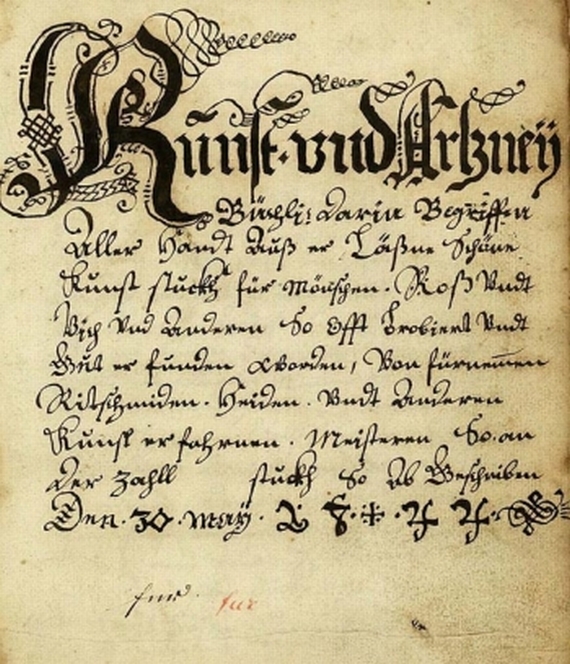 Kunst. vnd Artzneÿ
Büchli: darin Begriffen
Aller Handt Auß er Läßne Schöne
Kunst stuckh für Mönschen. Roß Vndt
Vich Vnd Anderen So Offt Probiert Vndt
Gut er funden Worden, Von fürnemen
Ritschmiden. Heiden. Vndt Anderen
Kunst erfahrnen. Meisteren So. an
der Zahll stuckh So Ab Geschriben
Den. 30. Maÿ.